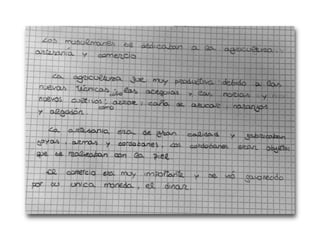 Los musulmanes se dedicaban a la agricultura,
artesanía y comercio
La agricultura fue muy productiva debido a las
nuevas técnicas; como las acequias y las norias y
nuevos cultivos; como arroz, caña de azucar, naranjos
y algodón.
La artesania era de gran calidad y fabricaban
joyas, armas y cordobanes, los cordobanes eran objetos
que se realizaban con la piel
El comercio era muy importante y se vió favorecido
por su unica moneda, el dinar.